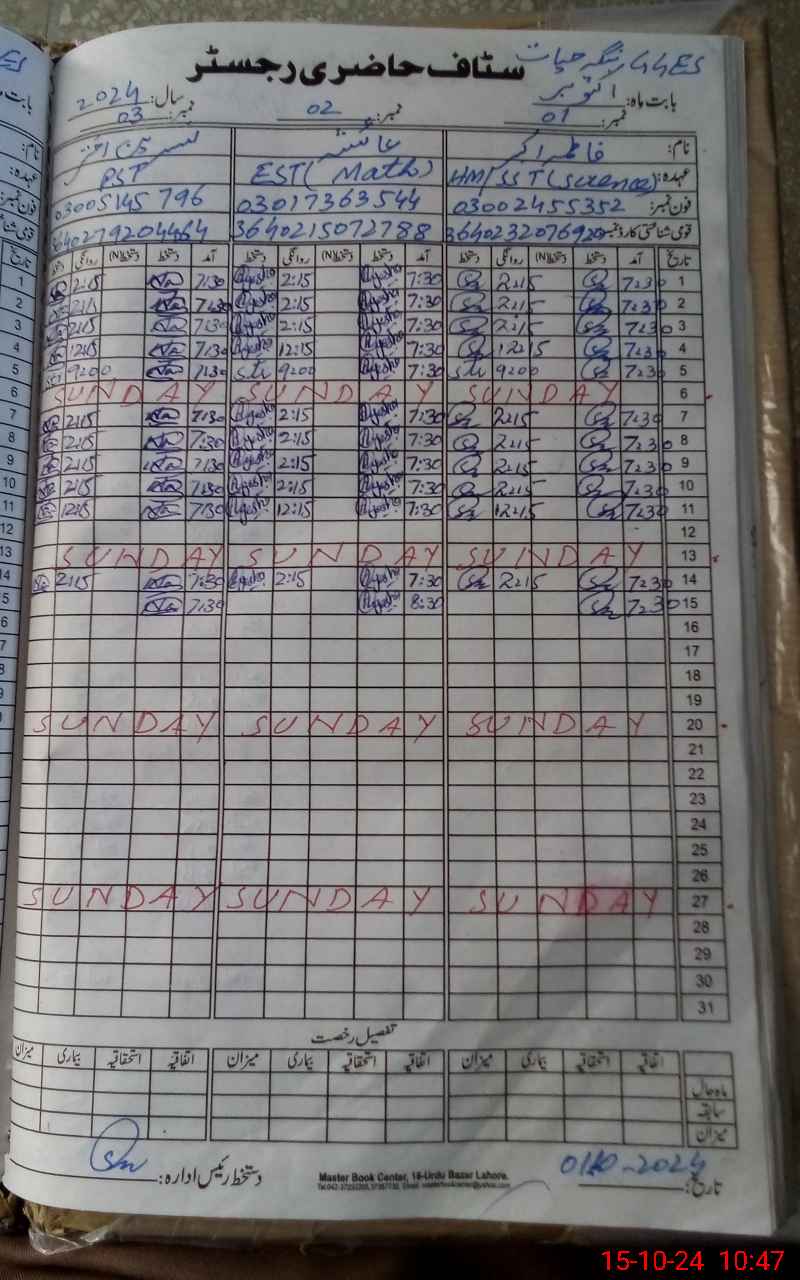 سٹاف حاضری رجسٹر GGES
بابت ماہ: اکتوبر سال: 2024
نمبر: 01 نمبر: 02 نمبر: 03
نام: فاطمہ اکبر عائشہ
عہدہ: HM/SST(Science) EST(Math) PST
فون نمبر: 03002455352 03017363544 03005145796
قومی شناختی کارڈ نمبر 3640215072788 3640279204464
تاریخ آمد دستخط دستخط(N) روانگی دستخط آمد دستخط دستخط(N) روانگی دستخط آمد دستخط دستخط(N) روانگی دستخط
1 7:30 2:15 7:30 Ayesha 2:15 Ayesha 7:30 2:15
2 7:30 2:15 7:30 Ayesha 2:15 Ayesha 7:30 2:15
3 7:30 2:15 7:30 Ayesha 2:15 Ayesha 7:30 2:15
4 7:30 12:15 7:30 Ayesha 12:15 Ayesha 7:30 12:15
5 7:30 9:00 7:30 Ayesha 9:00 7:30 9:00
6 SUNDAY SUNDAY SUNDAY
7 7:30 2:15 7:30 Ayesha 2:15 Ayesha 7:30 2:15
8 7:30 2:15 7:30 Ayesha 2:15 Ayesha 7:30 2:15
9 7:30 2:15 7:30 Ayesha 2:15 Ayesha 7:30 2:15
10 7:30 2:15 7:30 Ayesha 2:15 Ayesha 7:30 2:15
11 7:30 12:15 7:30 Ayesha 12:15 Ayesha 7:30 12:15
12
13 SUNDAY SUNDAY SUNDAY
14 7:30 2:15 7:30 Ayesha 2:15 Ayesha 7:30 2:15
15 7:30 8:30 Ayesha 7:30
16
17
18
19
20 SUNDAY SUNDAY SUNDAY
21
22
23
24
25
26
27 SUNDAY SUNDAY SUNDAY
28
29
30
31
تفصیل رخصت
اتفاقیہ استحقاقیہ بیماری میزان اتفاقیہ استحقاقیہ بیماری میزان اتفاقیہ استحقاقیہ بیماری میزان
ماہ حال
سابقہ
میزان
تاریخ: 01-10-2024 دستخط رئیس ادارہ:
Master Book Center, 16-Urdu Bazar Lahore.
15-10-24 10:47